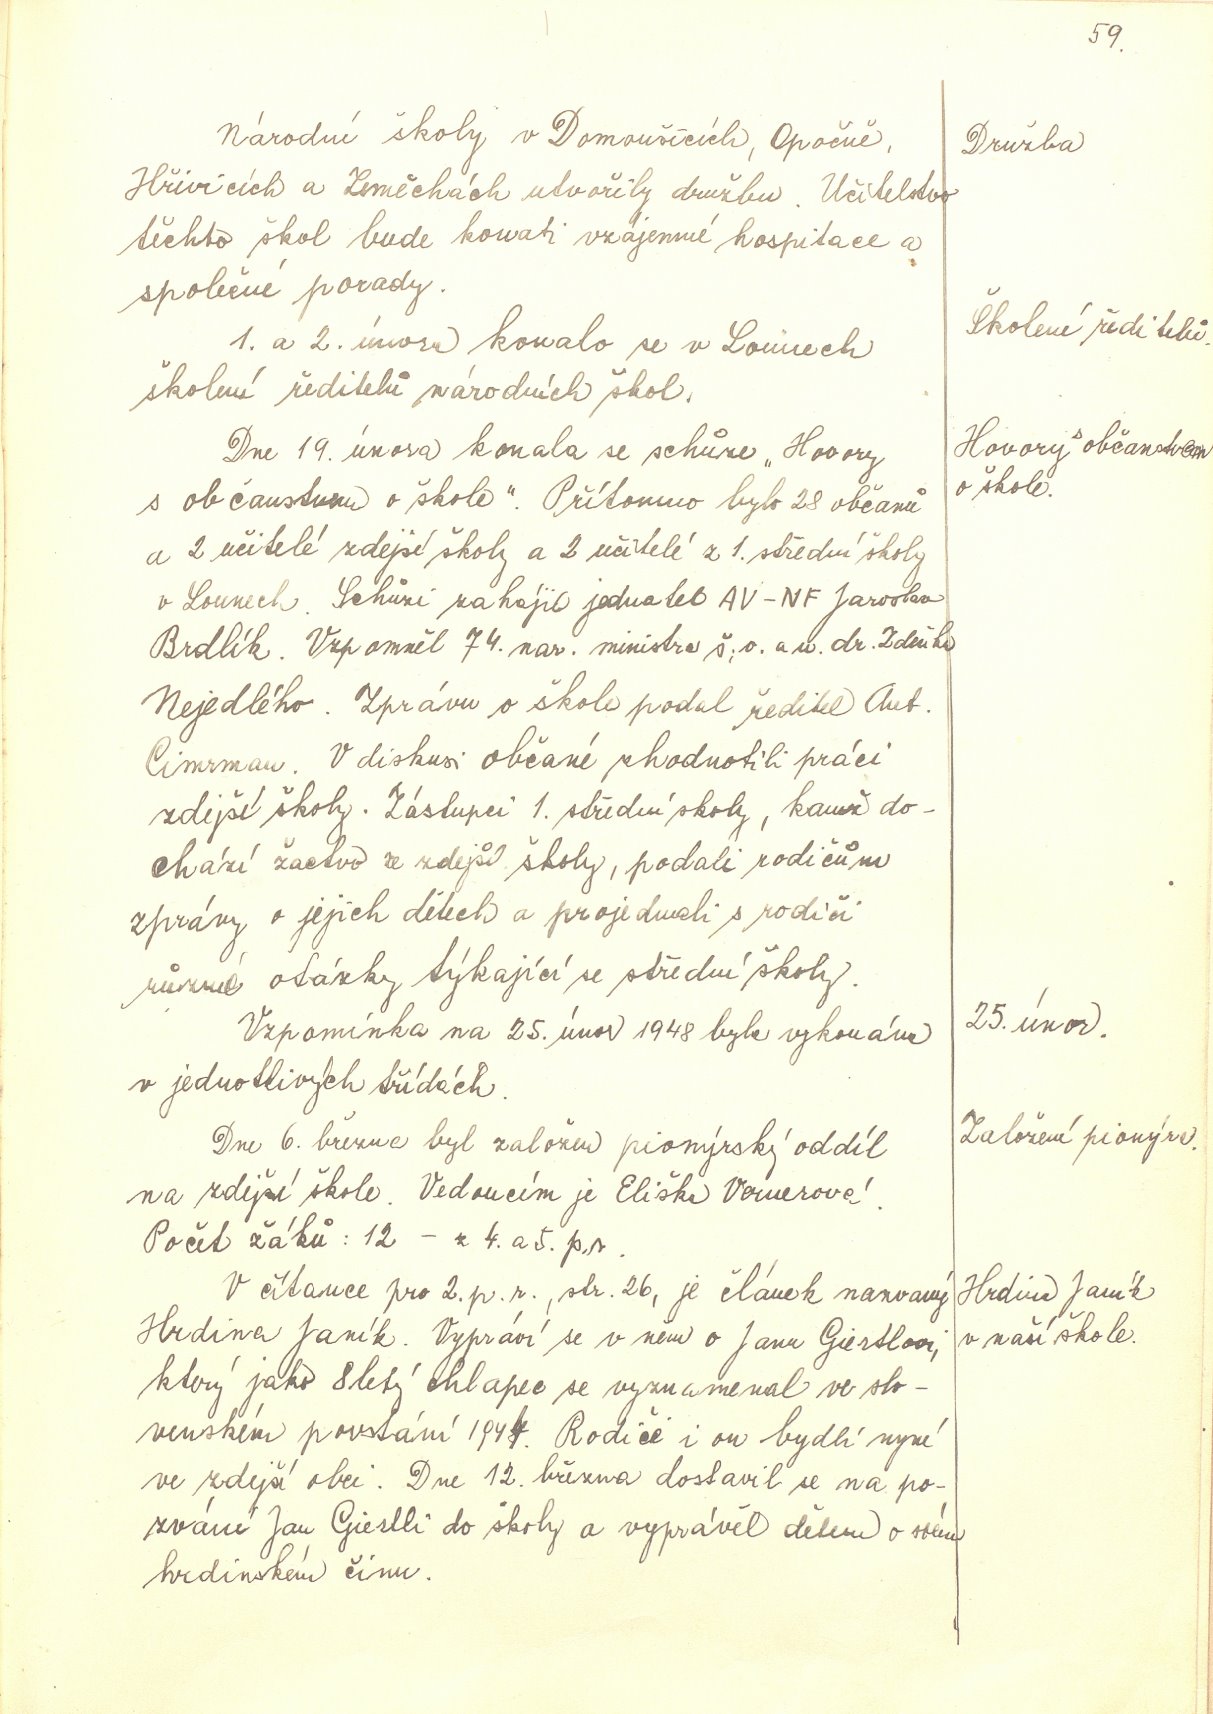 59.
Národní školy v Domoušicích, Opočně,
Družba
Hřivicích a Zeměchách utvořily družbu. Učitelstvo
těchto škol bude konati vzájemné hospitace a
společné porady.
Školení ředitelů.
1. a 2. února konalo se v Lounech
školení ředitelů národních škol.
Dne 19. února konala se schůze „Hovory
Hovory s občanstvem
s občanstvem o škole". Přítomno bylo 28 občanů
o škole.
a 2 učitelé zdejší školy a 2 učitelé z 1. střední školy
v Lounech. Schůzi zahájil jednatel AV-NF Jaroslav
Brdlík. Vzpomněl 74. nar. ministra š., v. a u. dr. Zdeňka
Nejedlého. Zprávu o škole podal ředitel Ant.
Cimrman. V diskusi občané zhodnotili práci
zdejší školy. Zástupci 1. střední školy, kamž do-
chází žactvo ze zdejší školy, podali rodičům
zprávy o jejich dětech a projednali s rodiči
různé otázky týkající se střední školy.
Vzpomínka na 25. únor 1948 byla vykonána
25. únor.
v jednotlivých třídách.
Dne 6. března byl založen pionýrský oddíl
Založení pionýra.
na zdejší škole. Vedoucím je Eliška Vernerová.
Počet žáků: 12 - z 4. a 5. p.r.
V čítance pro 2. p. r., str. 26, je článek nazvaný
Hrdina Janík
Hrdina Janík. Vypráví se v něm o Janu Giertlovi,
v naší škole.
který jako 8letý chlapec se vyznamenal ve slo-
venském povstání 1944. Rodiče i on bydlí nyní
ve zdejší obci. Dne 12. března dostavil se na po-
zvání Jan Giertli do školy a vyprávěl dětem o svém
hrdinském činu.